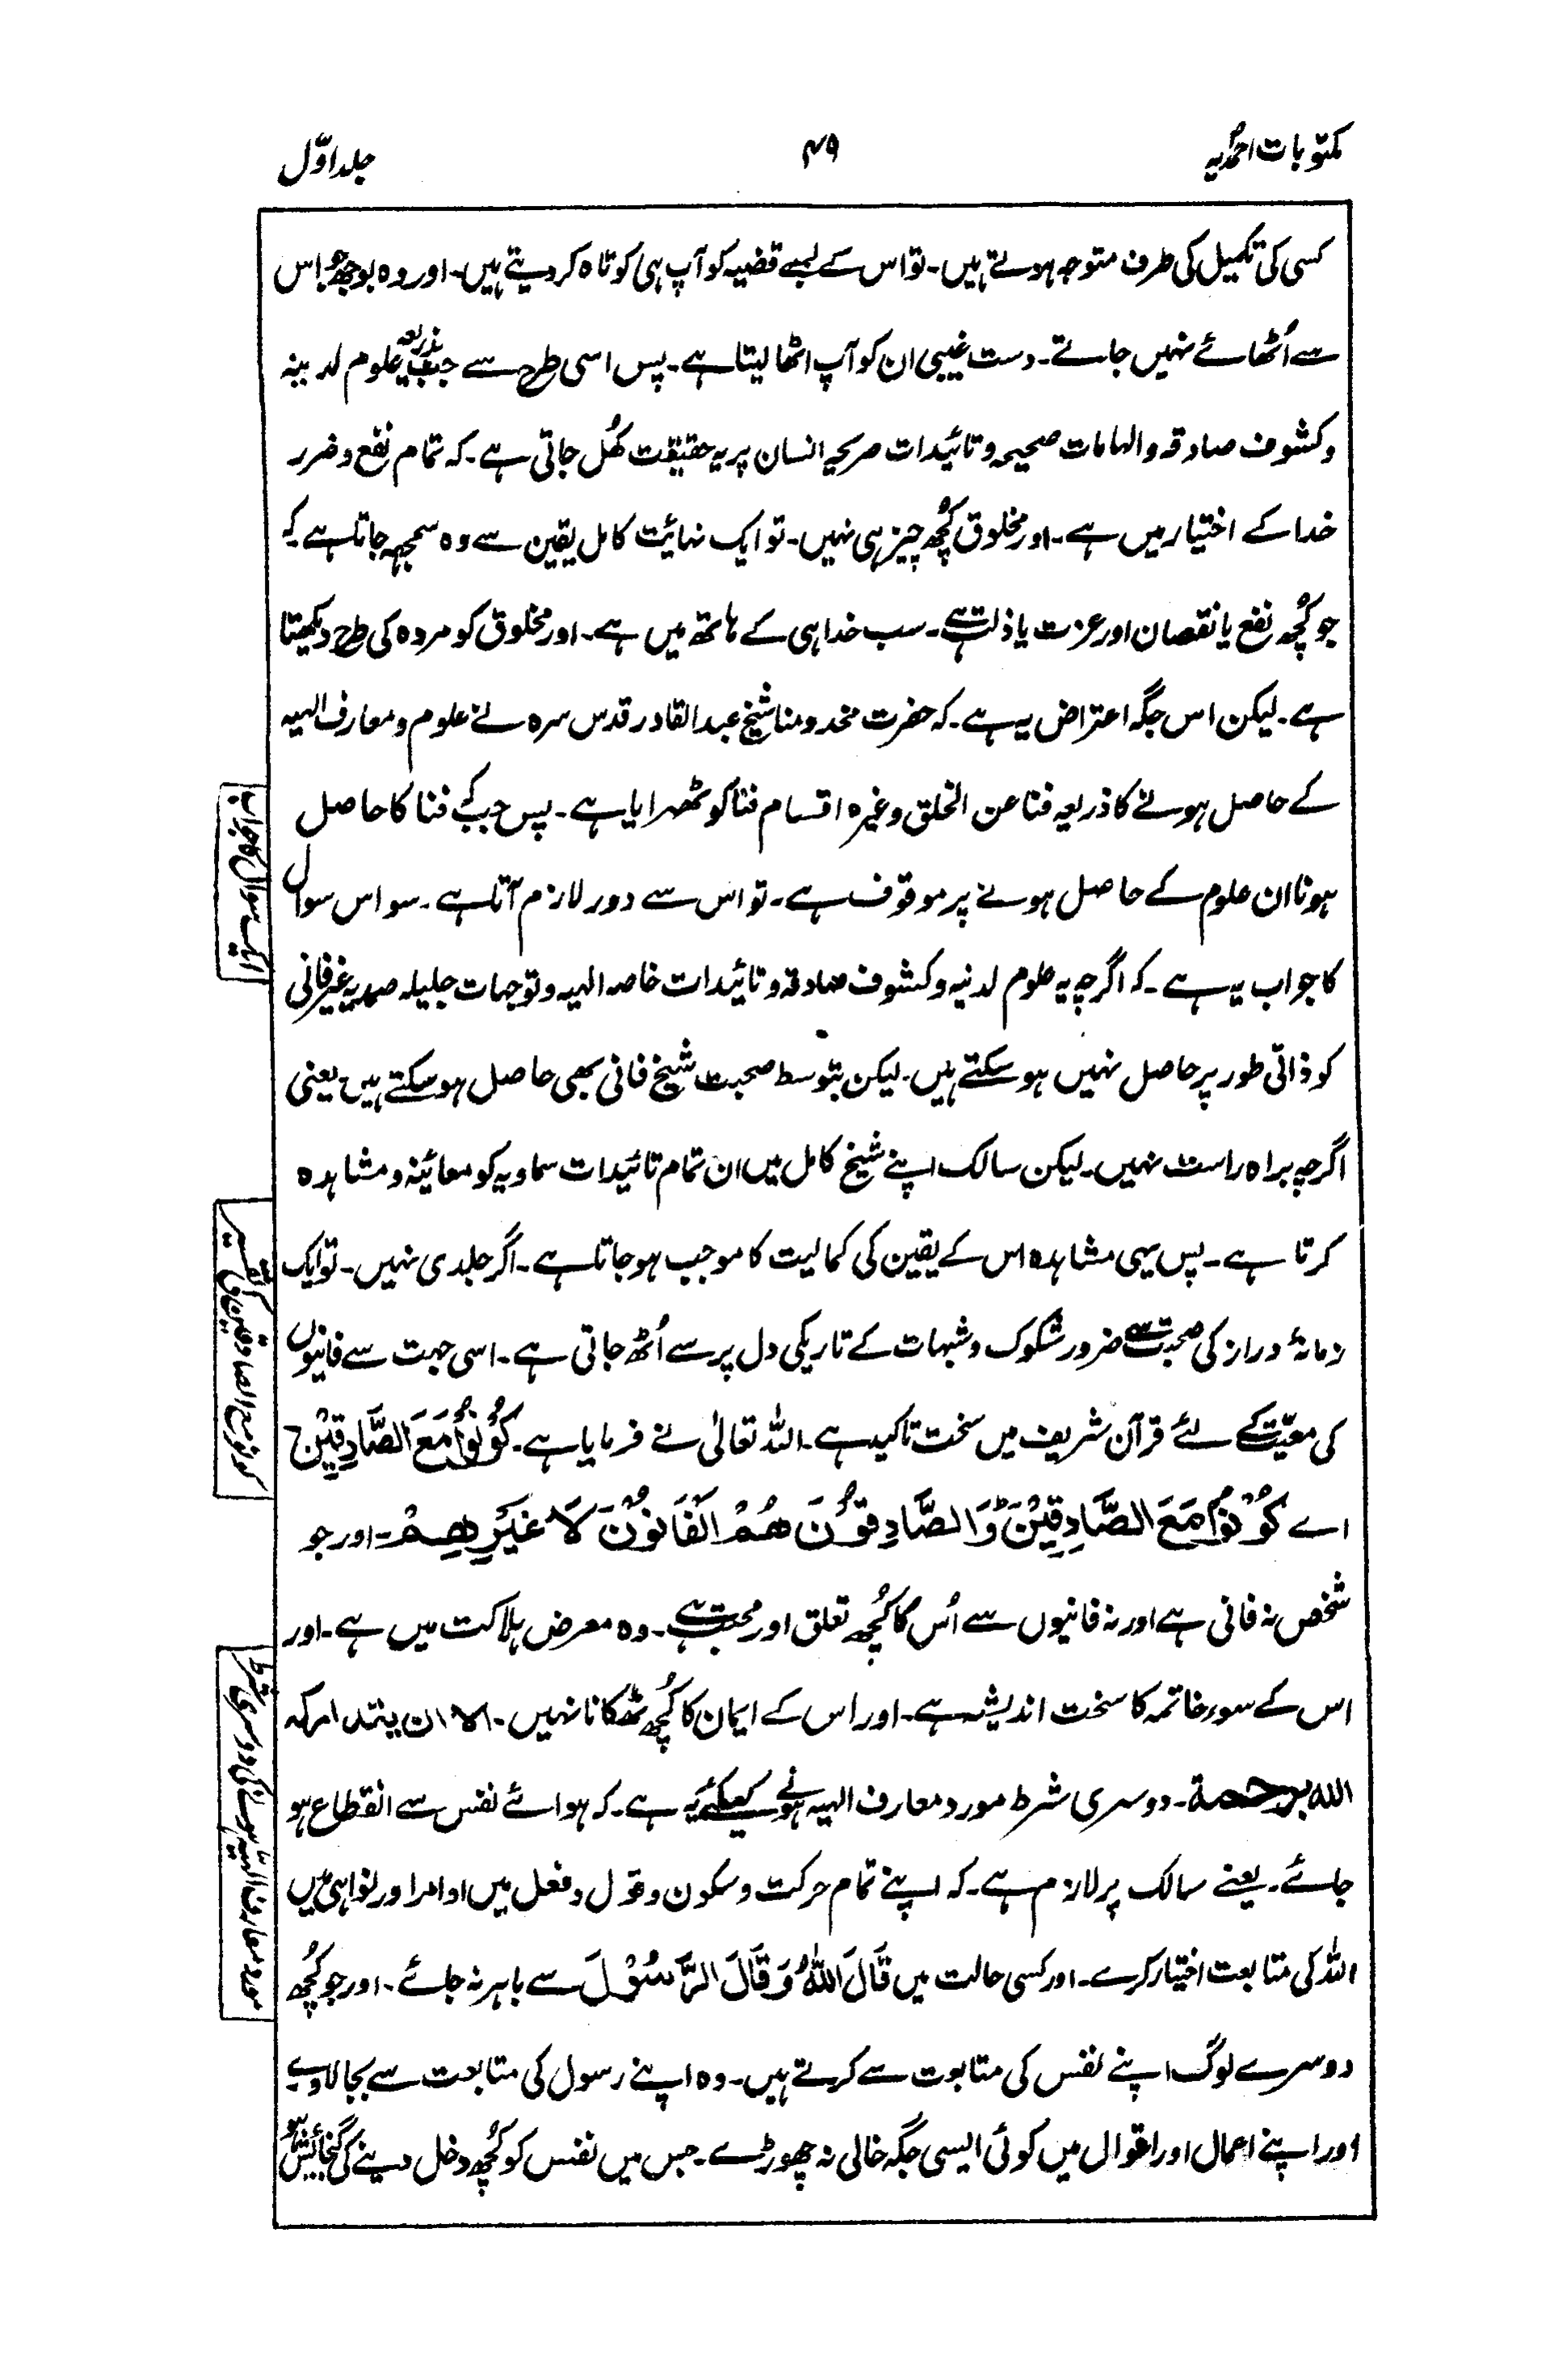 مکتوبات احمدیہ
۴۹
جلد اوّل
کسی کی تکمیل کی طرف متوجہ ہوتے ہیں۔ تو اس کے لمبے قضیہ کو آپ ہی کوتاہ کر دیتے ہیں۔ اور وہ بوجھ جو اس
سے اُٹھائے نہیں جاتے۔ دست غیبی ان کو آپ اٹھا لیتا ہے۔ پس اسی طرح سے جب بذریعہ علوم لدنیہ
و کشوف صادقہ و الہامات صحیحہ و تائیدات صریحہ انسان پر یہ حقیقت کھُل جاتی ہے۔ کہ تمام نفع و ضرر
خدا کے اختیار میں ہے۔ اور مخلوق کُچھ چیز ہی نہیں۔ تو ایک نہائیت کامل یقین سے وہ سمجھ جاتا ہے کہ
جو کُچھ نفع یا نقصان اور عزت یا ذلت ہے۔ سب خدا ہی کے ہاتھ میں ہے۔ اور مخلوق کو مردہ کی طرح دیکھتا
ہے۔ لیکن اس جگہ اعتراض یہ ہے۔ کہ حضرت مخدومنا شیخ عبدالقادر قدس سرہ نے علوم و معارف الہیہ
کے حاصل ہونے کا ذریعہ فنا عن الخلق وغیرہ اقسام فنا کو ٹھہرایا ہے۔ پس جب کہ فنا کا حاصل
ہونا ان علوم کے حاصل ہونے پر موقوف ہے۔ تو اس سے دور لازم آتا ہے۔ سو اس سوال
کا جواب یہ ہے۔ کہ اگرچہ یہ علوم لدنیہ و کشوف صادقہ و تائیدات خاصہ الہیہ و توجہات جلیلہ صمدیہ غیر فانی
کو ذاتی طور پر حاصل نہیں ہو سکتے ہیں۔ لیکن بتوسط صحبت شیخ فانی بھی حاصل ہو سکتے ہیں یعنی
اگرچہ براہ راست نہیں۔ لیکن سالک اپنے شیخ کامل میں ان تمام تائیدات سماویہ کو معائینہ و مشاہدہ
کرتا ہے۔ پس یہی مشاہدہ اس کے یقین کی کمالیت کا موجب ہو جاتا ہے۔ اگر جلدی نہیں۔ تو ایک
زمانۂ دراز کی صحبت سے ضرور شکوک و شبہات کے تاریکی دل پر سے اُٹھ جاتی ہے۔ اسی جہت سے فانیوں
کی معیّت کے لئے قرآن شریف میں سخت تاکید ہے۔ اللہ تعالیٰ نے فرمایا ہے۔ كُوْنُوْا مَعَ الصَّادِقِيْنَ
اے كُوْنُوْا مَعَ الصَّادِقِيْنَ وَالصَّادِقُوْنَ هُمُ الْفَانُوْنَ لَا غَيْرِهِمْ۔ اور جو
شخص نہ فانی ہے اور نہ فانیوں سے اُس کا کُچھ تعلق اور محبت ہے۔ وہ معرض ہلاکت میں ہے۔ اور
اس کے سوءِ خاتمہ کا سخت اندیشہ ہے۔ اور اس کے ایمان کا کُچھ ٹھکانا نہیں۔ الا ان یتدارکہ
اللہ برحمة۔ دوسری شرط مورد معارف الہیہ ہونے کیلئے یہ ہے۔ کہ ہوائے نفس سے انقطاع ہو
جائے۔ یعنے سالک پر لازم ہے۔ کہ اپنے تمام حرکت و سکون و قول و فعل میں اوامر اور نواہی میں
اللہ کی متابعت اختیار کرے۔ اور کسی حالت میں قَالَ اللّٰهُ وَ قَالَ الرَّسُوْلَ سے باہر نہ جائے۔ اور جو کُچھ
دوسرے لوگ اپنے نفس کی متابوت سے کرتے ہیں۔ وہ اپنے رسول کی متابعت سے بجا لاوے
اور اپنے اعمال اور اقوال میں کوئی ایسی جگہ خالی نہ چھوڑے۔ جس میں نفس کو کُچھ دخل دینے کی گنجائیش ہو
ایک سوال کا جواب
کونوا مع الصادقین کی تفسیر
مورد معارف الہیہ ہونے کی دوسری شرط